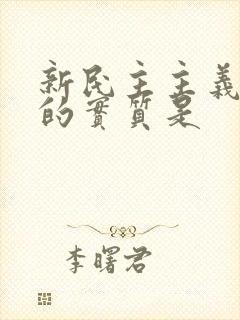 新民主主義
的實質是
李曙君